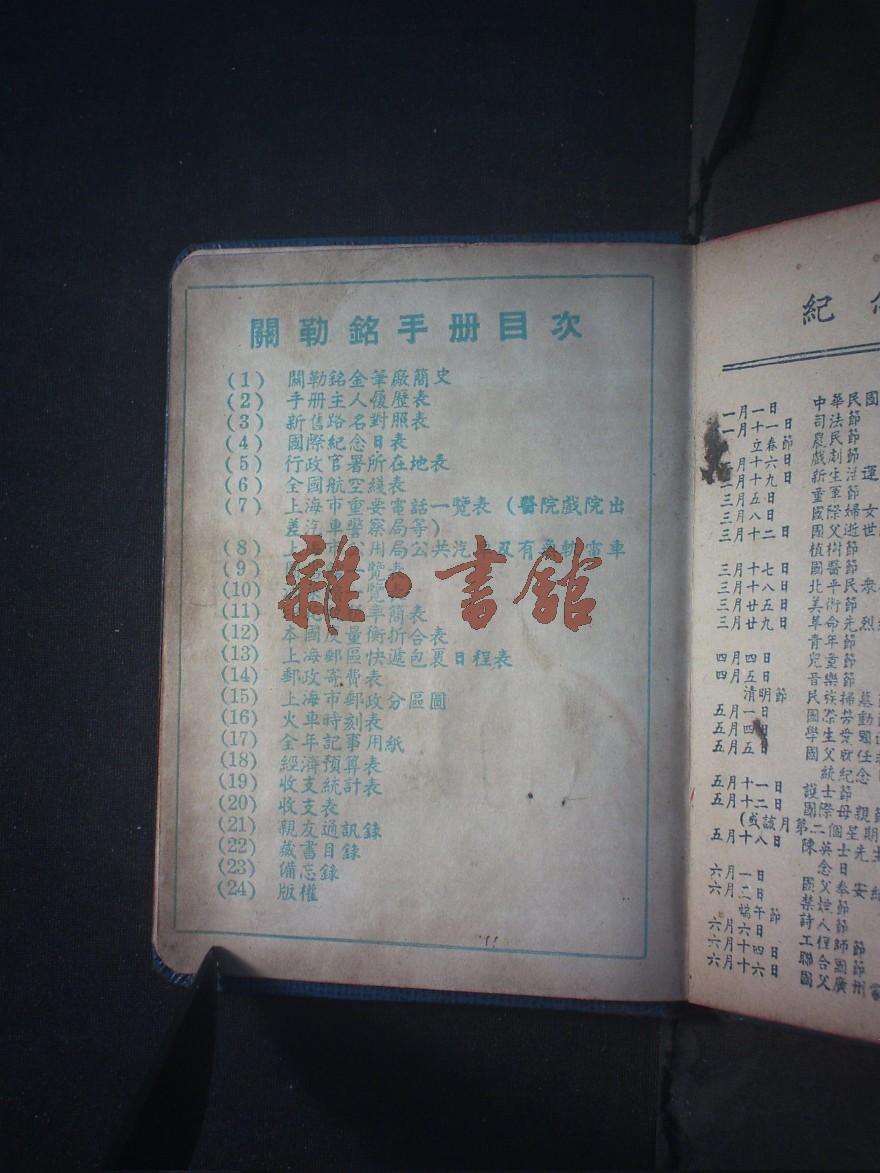 關勒銘手册目次
(1) 關勒銘金筆廠簡史
(2) 手册主人履歷表
(3) 新舊路名對照表
(4) 國際紀念日表
(5) 行政官署所在地表
(6) 全國航空綫表
(7) 上海市重要電話一覽表(醫院戲院出
差汽車警察局等)
(8) 上海市公用局公共汽車及有無軌電車
(9) 覽表
(10)
(11) 率簡表
(12) 本國度量衡折合表
(13) 上海郵區快遞包裹日程表
(14) 郵政寄費表
(15) 上海市郵政分區圖
(16) 火車時刻表
(17) 全年記事用紙
(18) 經濟預算表
(19) 收支統計表
(20) 收支表
(21) 親友通訊錄
(22) 藏書目錄
(23) 備忘錄
(24) 版權
雜·書館
紀
一月一日 中華民國
一月十一日 司法節
立春節 農民節
戲劇節
新生活運
童軍節
三月八日 國際婦女
三月十二日 國父逝世
植樹節
三月十七日 國醫節
三月十八日 北平民衆
三月廿五日 美術節
三月廿九日 革命先烈
青年節
四月四日 兒童節
四月五日 音樂節
清明節 民族掃墓
五月一日 國際勞動
五月四日 學生
五月五日 國父就任
統紀念
五月十一日 護士節
五月十二日 國際母親節
(或該月第二個星期
五月十八日 陳英士先生
念日
六月一日 國父奉安紀
六月二日 禁煙節
端午節 詩人節
六月六日 工程師節
六月十四日 聯合國節
六月十六日 國父廣州蒙